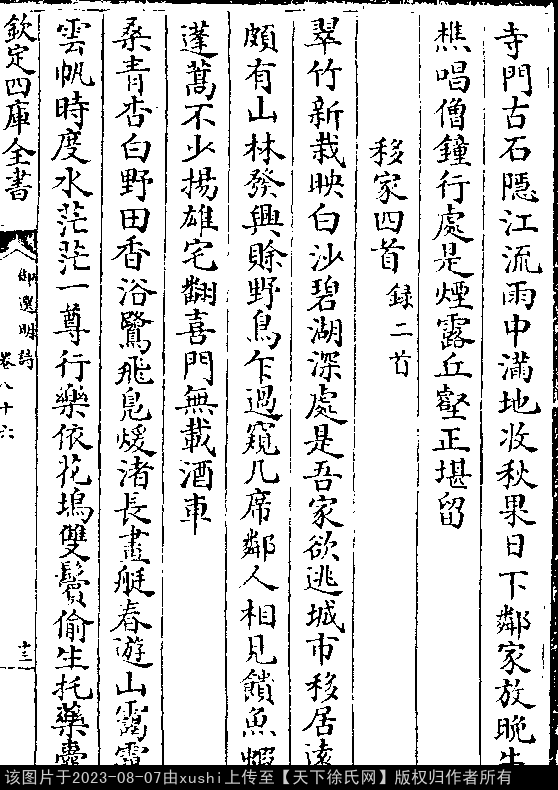 寺門古石隱江流雨中滿地收秋果日下鄰家放晩
樵唱僧鐘行處是煙露丘壑正堪留
移家四首 録二首
翠竹新栽映白沙碧湖深處是吾家欲逃城市移居遠
頗有山林發興賒野鳥乍過窺几席鄰人相見饋魚蝦
蓬蒿不少揚雄宅翻喜門無載酒車
桑青杏白野田香浴鷺飛鳬煖渚長畫艇春遊山靄靄
雲帆時度水茫茫一尊行樂依花塢雙鬢偷生托藥囊
欽定四庫全書
御選明詩
卷八十六
十三
该图片于2023-08-07由xushi上传至【天下徐氏网】版权归作者所有